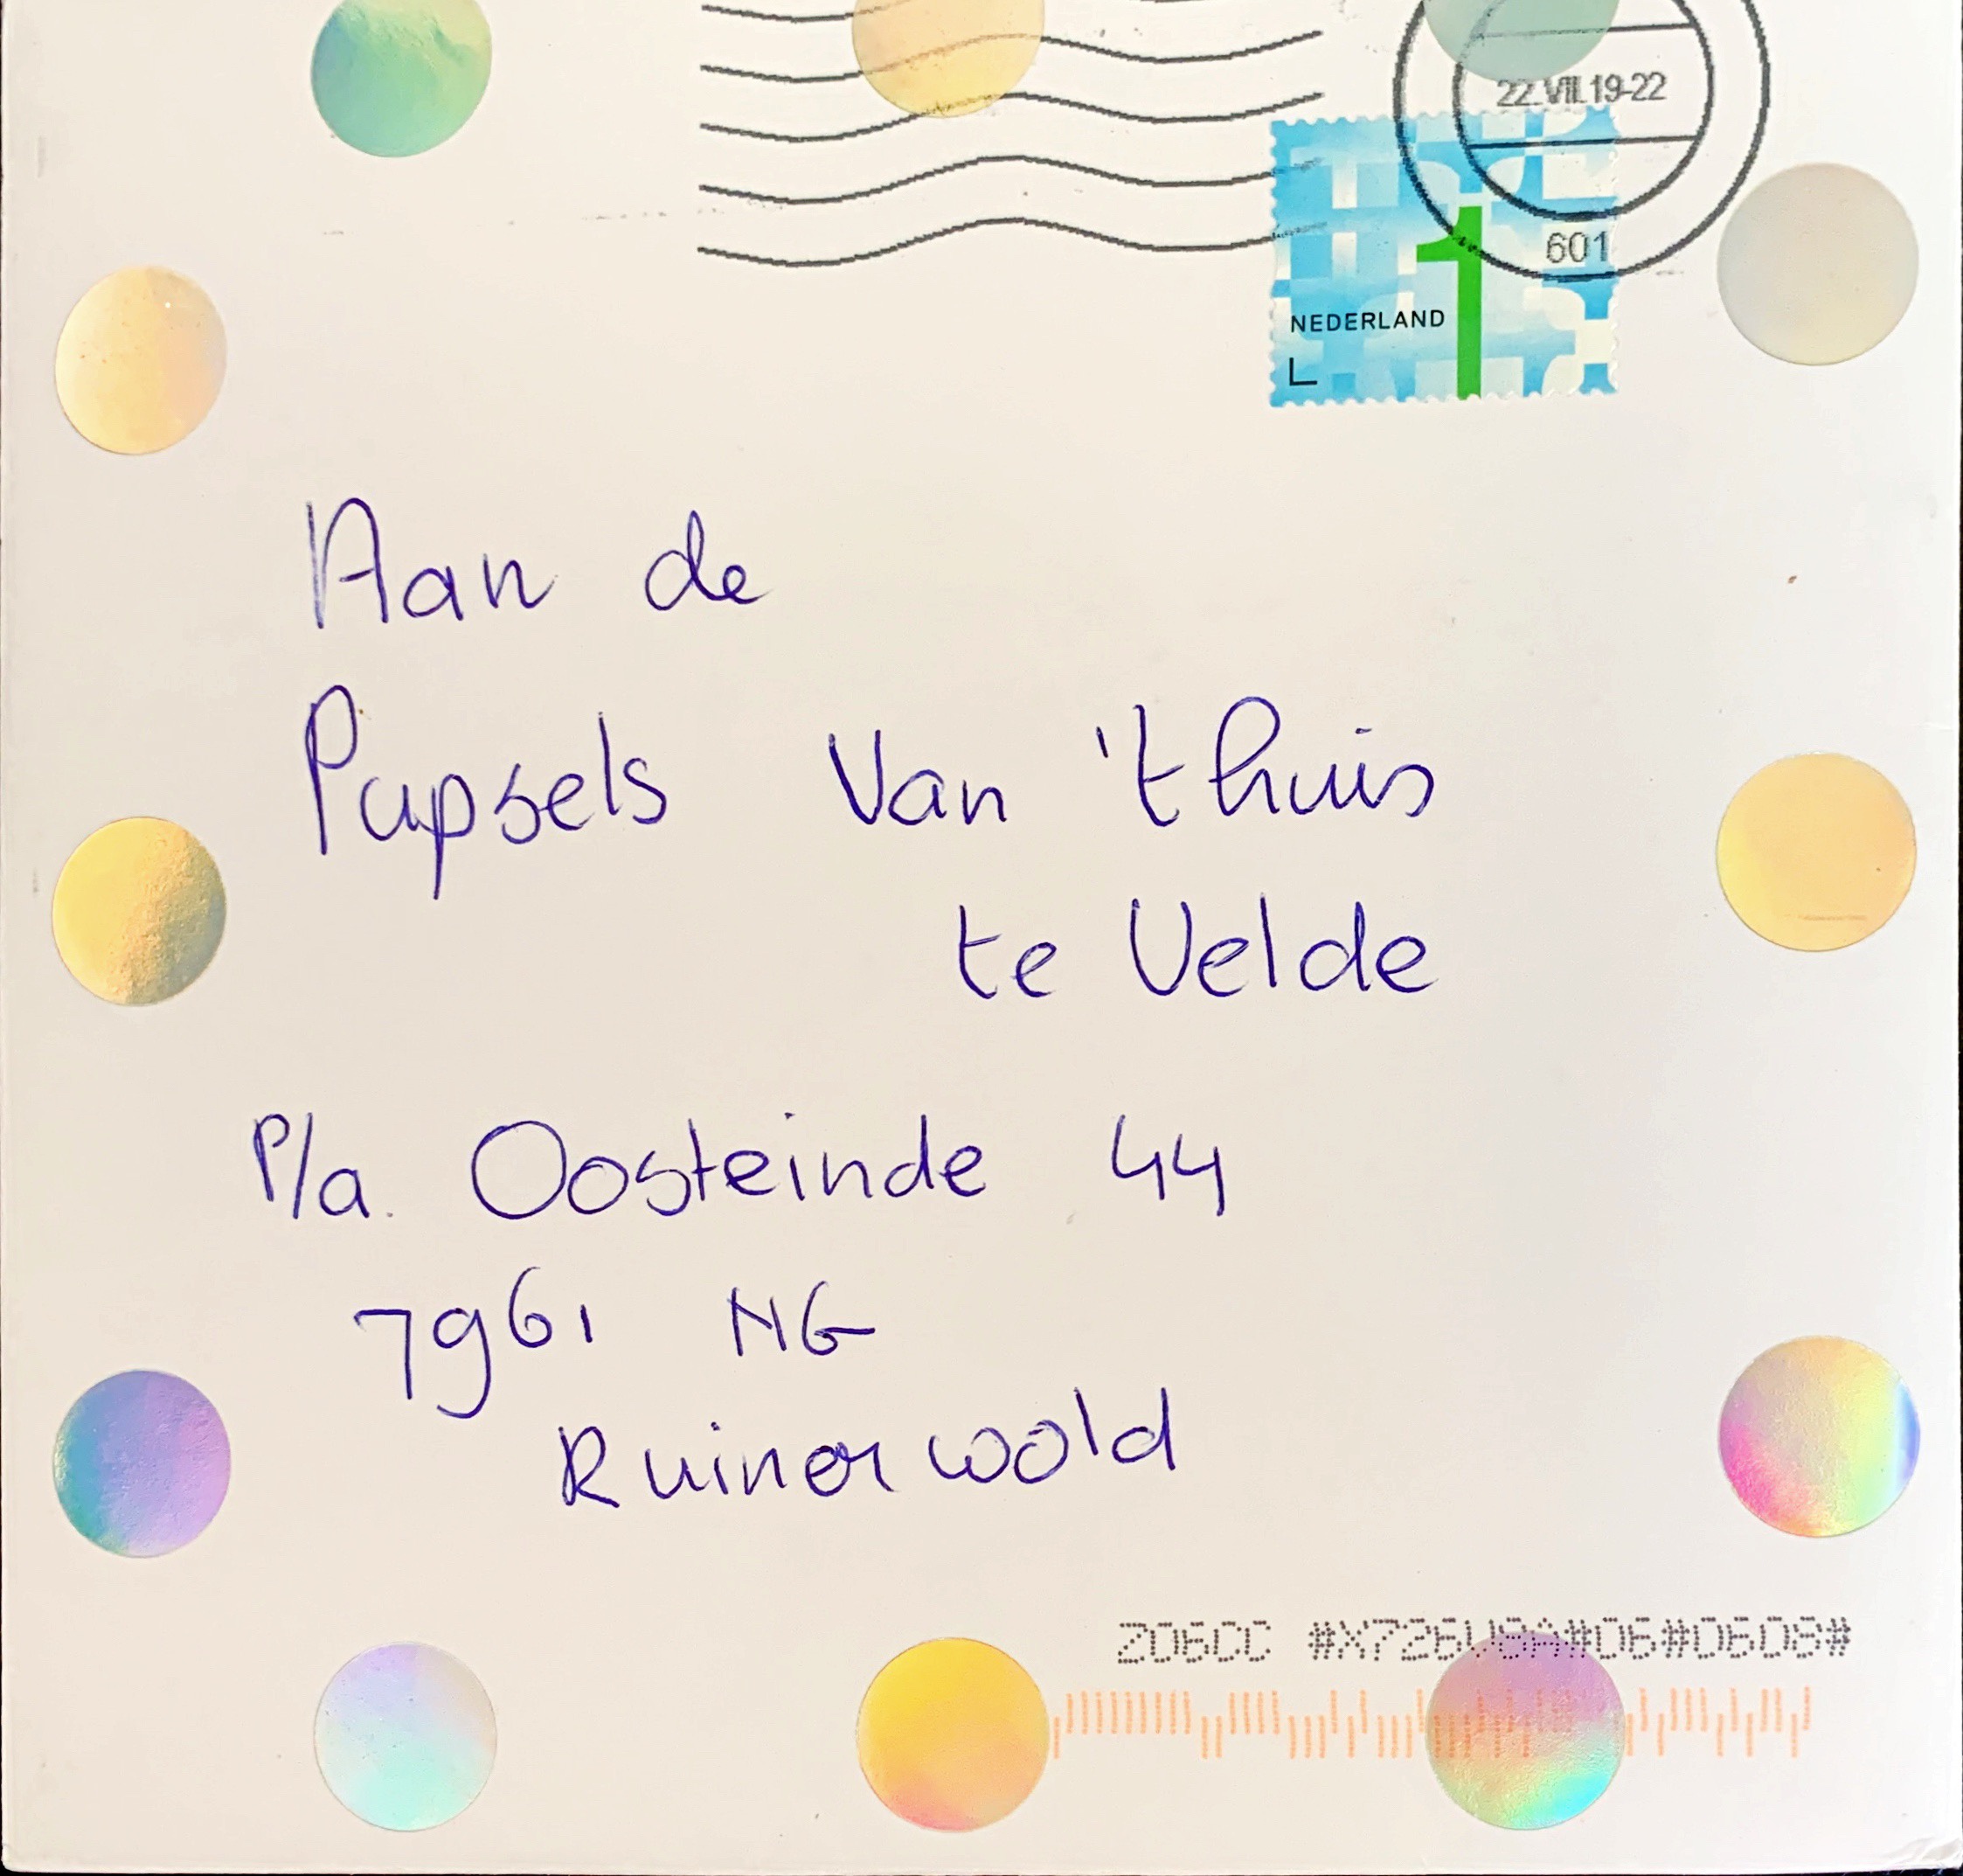 22.VIII.19-22
601
1
NEDERLAND
L
Aan de
Pupsels Van 't huis
te Velde
P/a. Oosteinde 44
7961 NG
Ruinerwold